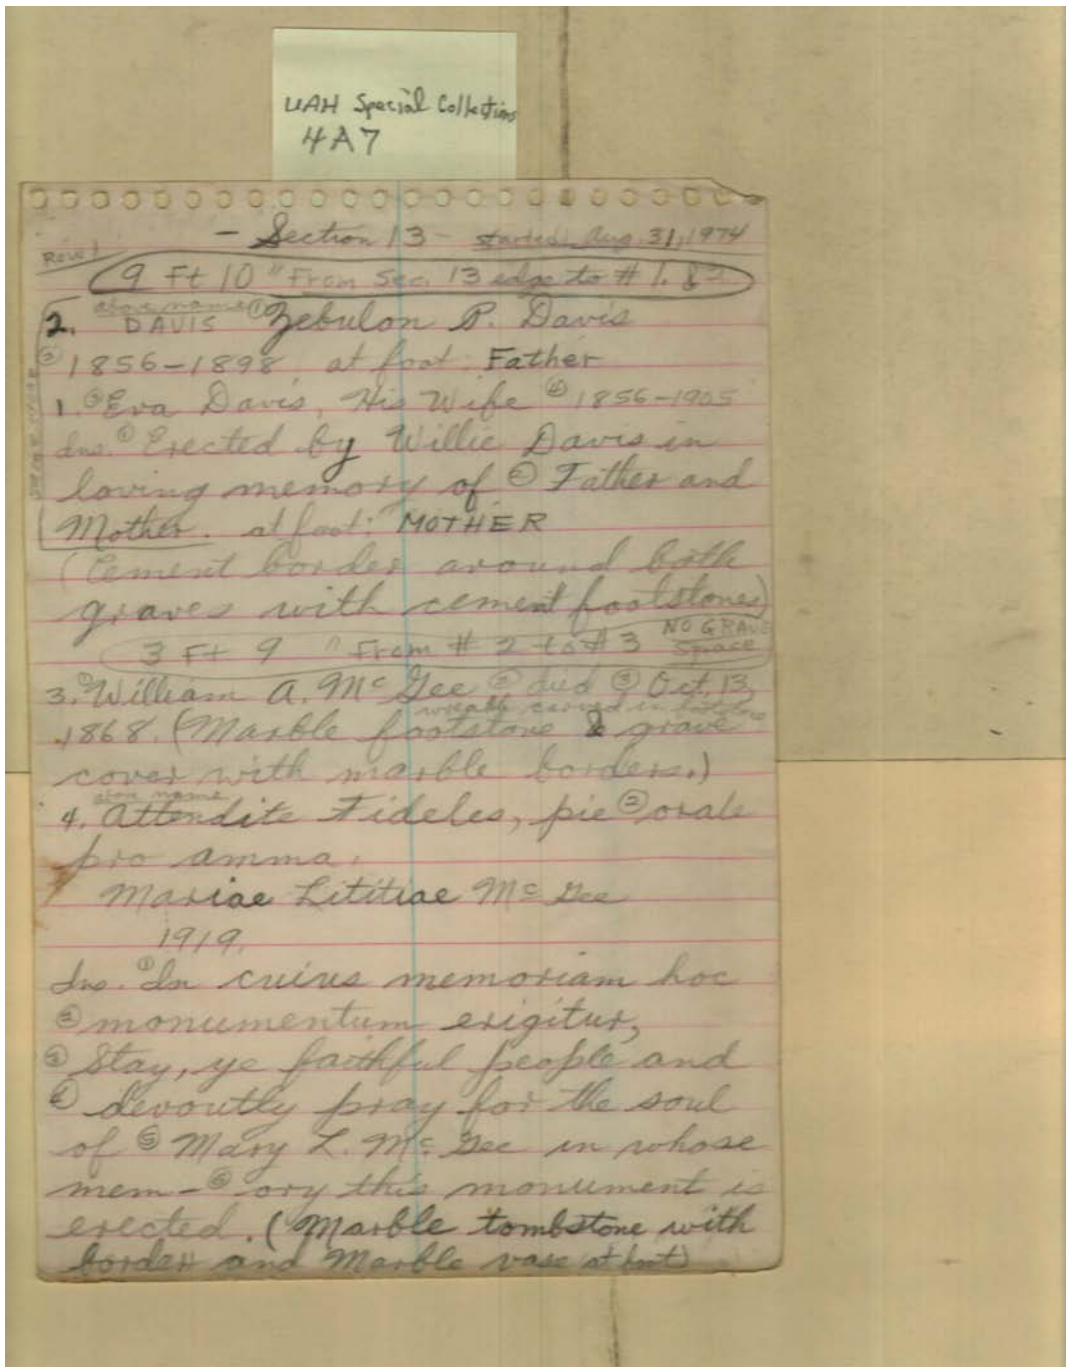 UAH Special Collections
4A7
- Section 13 - started Aug. 31, 1974
Row 1
9 Ft 10 " From Sec. 13 edge to # 1. & 2
above name
2. DAVIS ① Zebulon P. Davis
② 1856-1898 at foot: Father
1. ③ Eva Davis, His Wife ④ 1856-1905
Ins. ① Erected by Willie Davis in
loving memory of ② Father and
Mother. at foot: MOTHER
(Cement border around both
graves with cement footstones)
3 Ft 9 " From # 2 to # 3 NO GRAVE
Space
3. ① William A. Mc Gee ② died ③ Oct. 13,
wreath carved in
1868. (Marble footstone & grave
cover with marble borders.)
above name
4. Attendite Fideles, pie ② orate
pro amma.
Mariae Lititiae Mc Gee
1919.
Ins. ① In cuius memoriam hoc
② monumentum erigitur,
③ Stay, ye faithful people and
④ devoutly pray for the soul
of ⑤ Mary L. Mc Gee in whose
mem- ⑥ ory this monument is
erected. (Marble tombstone with
border and Marble vase at foot)